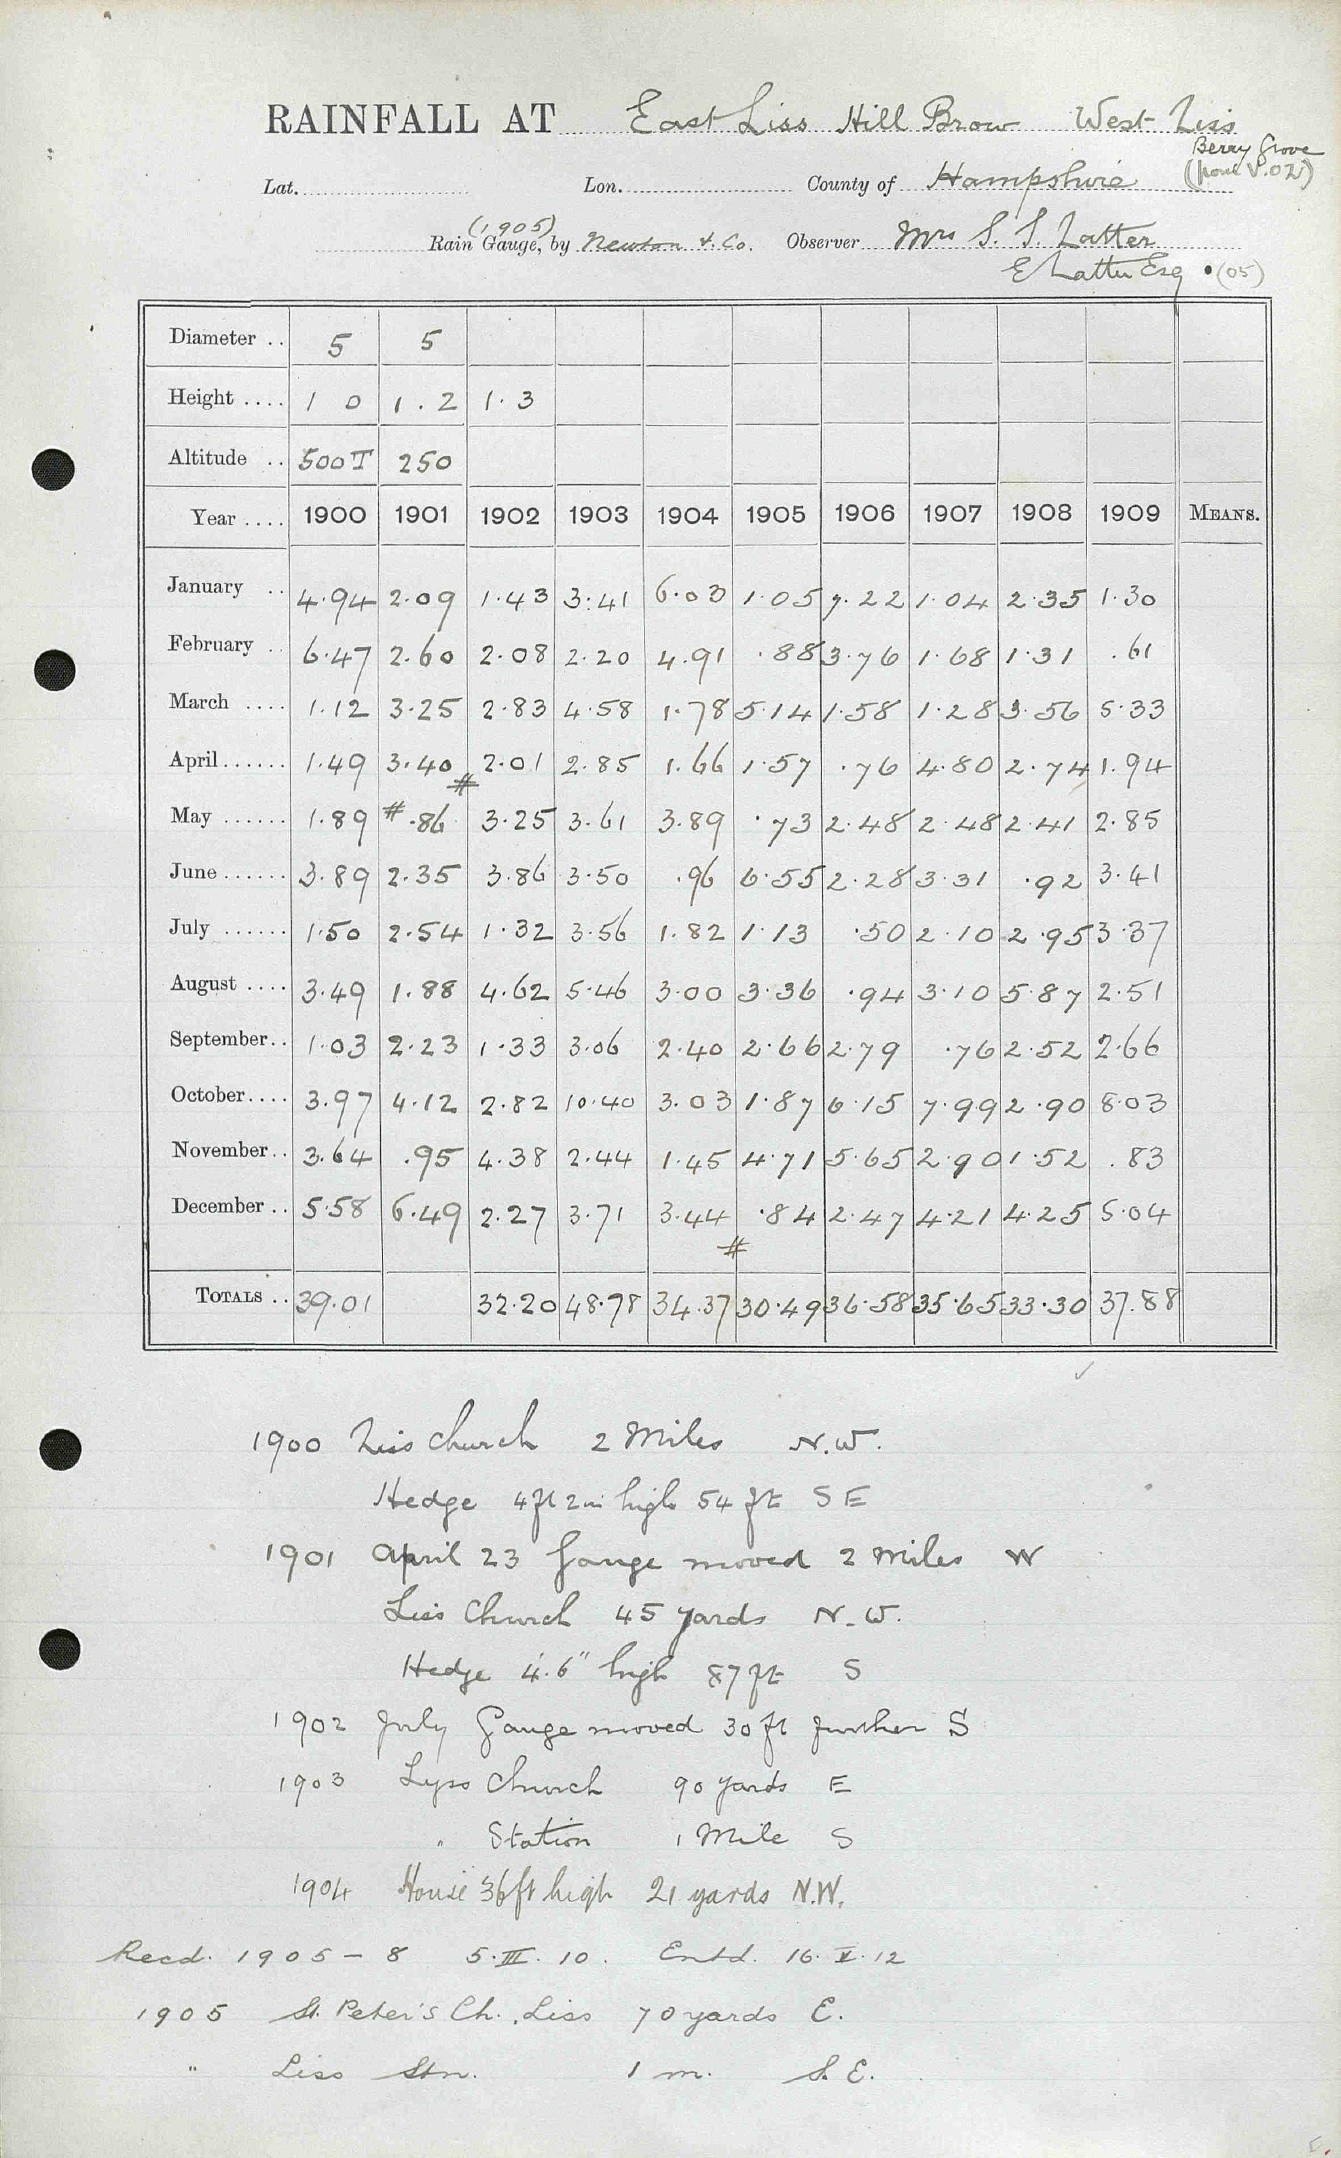 RAINFALL AT East Liss Hill Brow West Liss
Berry Grove
Lat. Lon. County of Hampshire (from V.02)
(1905)
Rain Gauge, by Newton & Co. Observer Mrs S. S. Latter
E Latter Esq • (05)
Diameter .. 5 5
Height .... 1 0 1.2 1.3
Altitude .. 500T 250
Year .... 1900 1901 1902 1903 1904 1905 1906 1907 1908 1909 MEANS.
January .. 4.94 2.09 1.43 3.41 6.03 1.05 7.22 1.04 2.35 1.30
February .. 6.47 2.60 2.08 2.20 4.91 .88 3.76 1.68 1.31 .61
March .... 1.12 3.25 2.83 4.58 1.78 5.14 1.58 1.28 3.56 5.33
April...... 1.49 3.40 2.01 2.85 1.66 1.57 .76 4.80 2.74 1.94
#
May ...... 1.89 # .86 3.25 3.61 3.89 .73 2.48 2.48 2.41 2.85
June...... 3.89 2.35 3.86 3.50 .96 6.55 2.28 3.31 .92 3.41
July ...... 1.50 2.54 1.32 3.56 1.82 1.13 .50 2.10 2.95 3.37
August .... 3.49 1.88 4.62 5.46 3.00 3.36 .94 3.10 5.87 2.51
September.. 1.03 2.23 1.33 3.06 2.40 2.66 2.79 .76 2.52 2.66
October.... 3.97 4.12 2.82 10.40 3.03 1.87 6.15 7.99 2.90 8.03
November.. 3.64 .95 4.38 2.44 1.45 4.71 5.65 2.90 1.52 .83
December .. 5.58 6.49 2.27 3.71 3.44 .84 2.47 4.21 4.25 5.04
#
TOTALS .. 39.01 32.20 48.78 34.37 30.49 36.58 35.65 33.30 37.88
1900 Liss Church 2 Miles N.W.
Hedge 4ft 2in high 54 ft S E
1901 April 23 Gauge moved 2 Miles W
Liss Church 45 yards N.W.
Hedge 4'.6" high 87 ft S
1902 July Gauge moved 30 ft further S
1903 Lyss Church 90 yards E
" Station 1 Mile S
1904 House 36ft high 21 yards N.W.
Recd. 1905-8 5.III.10. Entd. 16.V.12
1905 St. Peter's Ch., Liss 70 yards E.
" Liss Stn. 1 m. S.E.